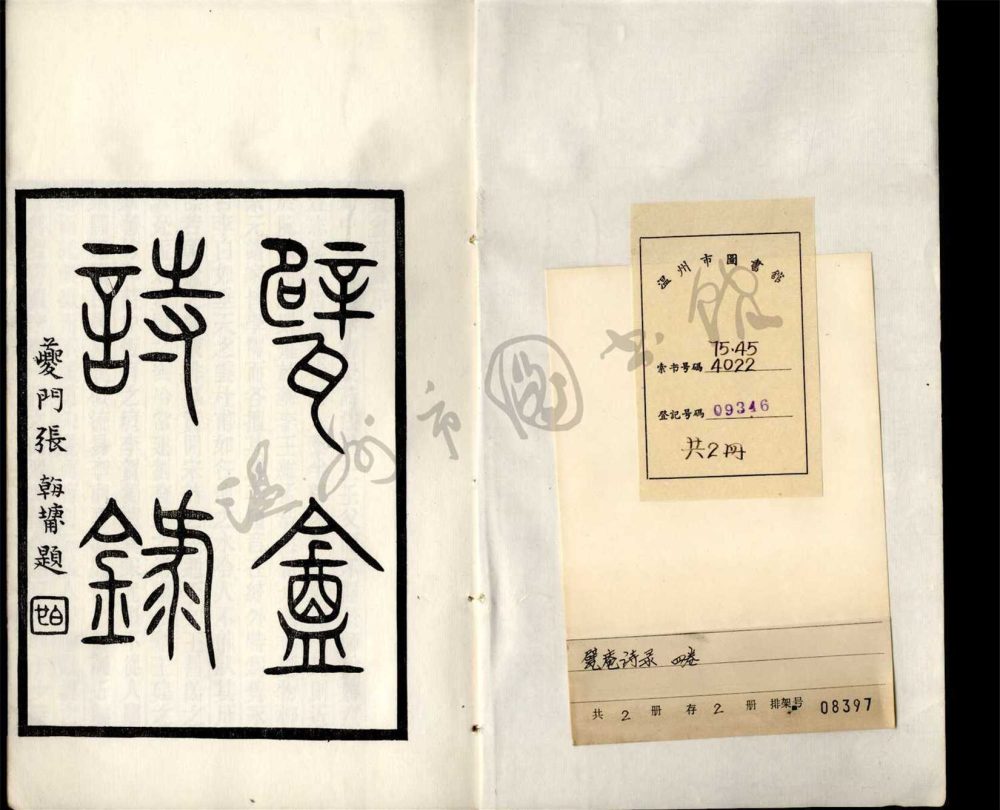 甓盦
詩錄
夔門張朝墉題
温州市圖书馆
温州市圖書館
索书号碼 75·45
4022
登记号碼 09346
共2册
甓庵诗录 四卷
共 2 册 存 2 册 排架号 08397